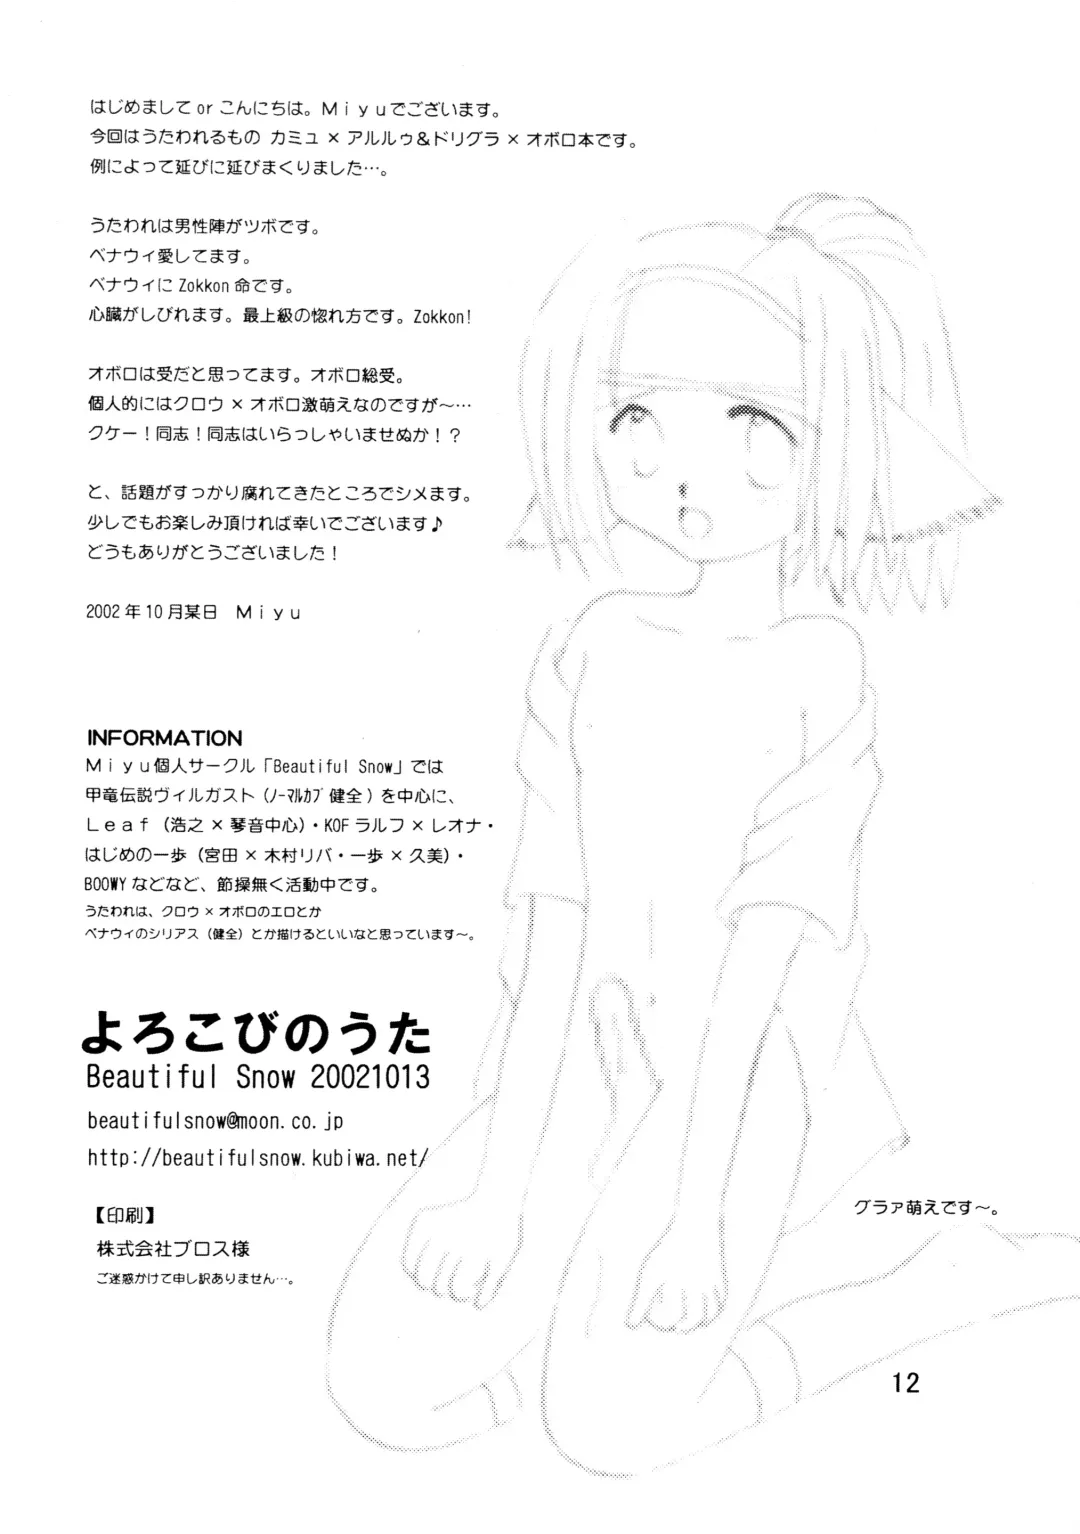 はじめまして or こんにちは。Ｍｉｙｕでございます。
今回はうたわれるもの カミュ × アルルゥ＆ドリグラ × オボロ本です。
例によって延びに延びまくりました…。
うたわれは男性陣がツボです。
ベナウィ愛してます。
ベナウィに Zokkon 命です。
心臓がしびれます。最上級の惚れ方です。Zokkon!
オボロは受だと思ってます。オボロ総受。
個人的にはクロウ × オボロ激萌えなのですが〜…
クケー！同志！同志はいらっしゃいませぬか！？
と、話題がすっかり腐れてきたところでシメます。
少しでもお楽しみ頂ければ幸いでございます♪
どうもありがとうございました！
2002 年 10 月某日　Ｍｉｙｕ
INFORMATION
Ｍｉｙｕ個人サークル「Beautiful Snow」では
甲竜伝説ヴィルガスト（ﾉｰﾏﾙｶﾌﾟ健全）を中心に、
Ｌｅａｆ（浩之 × 琴音中心）・KOF ラルフ × レオナ・
はじめの一歩（宮田 × 木村リバ・一歩 × 久美）・
BOOWY などなど、節操無く活動中です。
うたわれは、クロウ × オボロのエロとか
ベナウィのシリアス（健全）とか描けるといいなと思っています〜。
よろこびのうた
Beautiful Snow 20021013
beautifulsnow@moon.co.jp
http://beautifulsnow.kubiwa.net/
【印刷】
株式会社ブロス様
ご迷惑かけて申し訳ありません…。
グラァ萌えです〜。
12